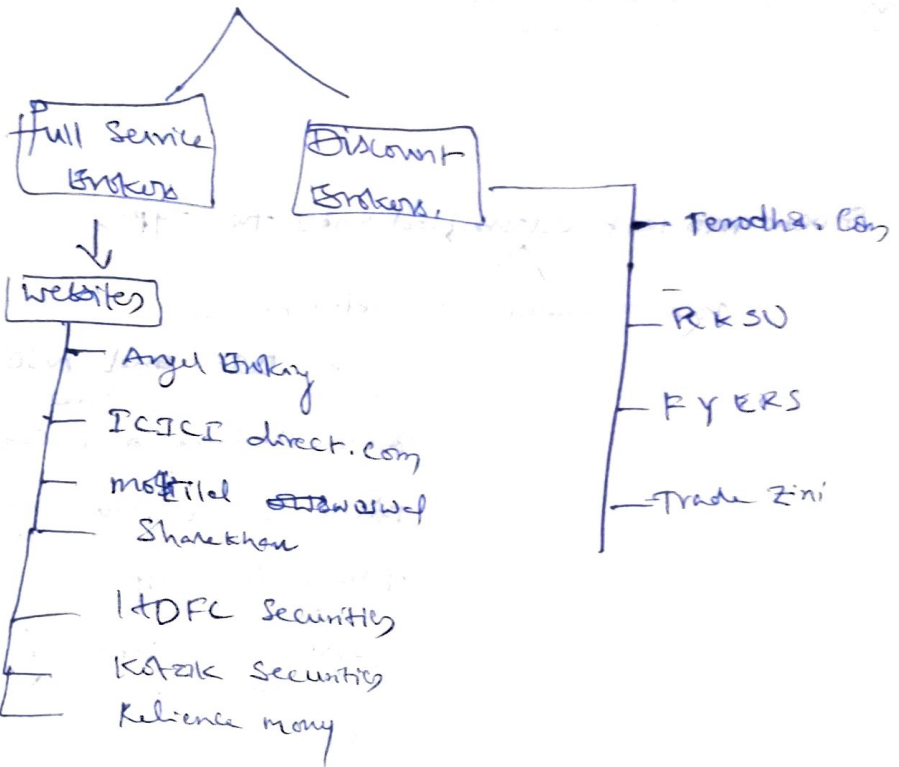 Full Service
Brokers
Discount
Brokers.
Websites
Angel Broking
ICICI direct.com
Motilal
Sharekhan
HDFC Securities
Kotak Securities
Relience mony
Terodha. Com
RKSU
FYERS
Trade Zini